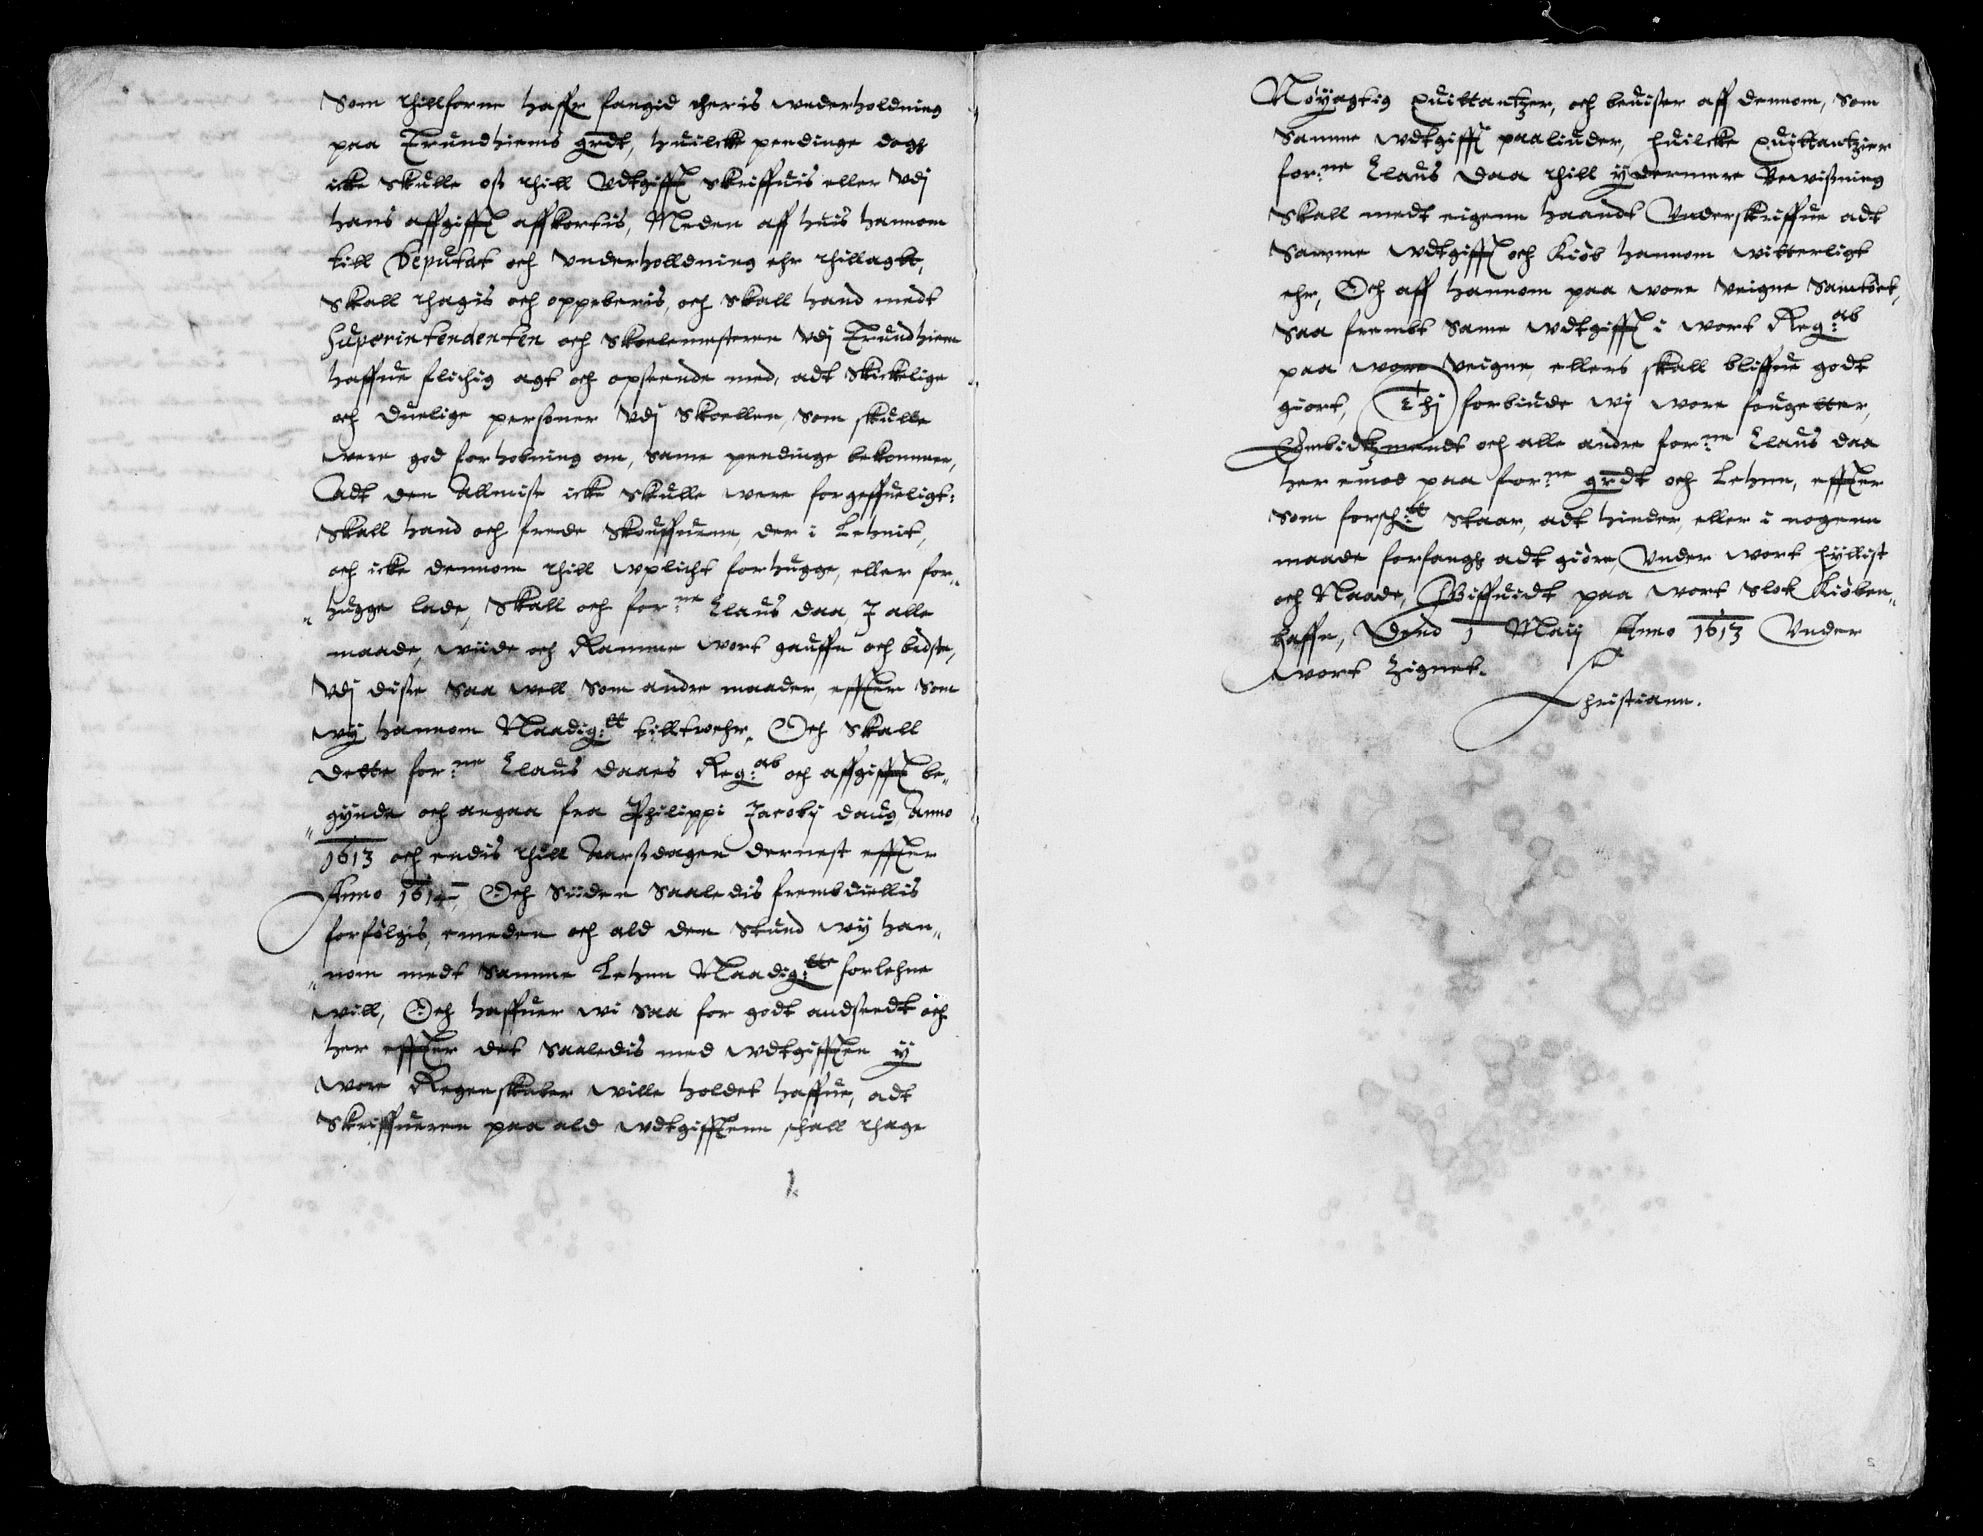 Som thillforne haffr fangid theris wnderholdning
paa Trundhiems grdt, huilcke pendinge dogh
icke skulle oss thill Vdtgifft skriffuis eller Vdj
hans affgifft affkortis, Meden aff huis hannom
till Deputat och Vnderholldning ehr thillagtt,
skall thagis och oppeberis, och skall hand medt
Superintendenten och Skoelemesteren Vdj Trundhiem
haffue flichtig agt och opseende med, adt Skickelige
och duelige personer Vdj Skoellen, som skulle
were god forhobning om, same pendinge bekommer,
Adt den Allmisse icke skulle were forgeffueligt:
Skall hand och frede Skouffuene, der i Lehnit,
och icke dennom thill wplicht forhugge, eller for„
„hugge lade, Skall och for:ne Claus daa, J alle
maade, wiide och Ramme wort gauffn och bedste,
Vdj disse saa well som andre maader, effter som
wy hannom Naadig:tt tilltroehr, Och skall
dette for:ne Claus daaes Reg:ab och affgifft be„
„gynde och angaa fra Philippi Jacobj daug, Anno
1613 och endis thill Aarssdagen dernest effter
Anno 1614, Och siiden saaledis frembdiellis
forfölgis, emeden och ald den stund wy han„
„nom medt samme Lehnn Naadig:tte forlehne
will, Och haffuer wi saa for godt andseedt och
her effter det saaledis med wdtgifften y
wore Regenskaber wille holdet haffue, adt
Skriffueren paa ald wdtgifftenn schall thage
1.
Nöyagtig Quittantzer, och beuiser aff dennom, som
samme wdtgifft paaliuder, huilcke Quittantzier
for:ne Claus Daa thill ydermere Bewissning
skall medt eigenn haandt Vnderskriffue adt
samme wdtgifft och Kiöb hannom witterligt
ehr, Och aff hannom paa wore Veigne samtöct,
saa frembt same wdtgifft i wort Reg:ab
paa wore veigne, ellers skall bliffue godt
giort, Thj forbiude wj wore fougetter,
Embidtzmendt och alle andre for:ne Claus daa
her emod paa for:ne grdt och Lehnn, effter
som forsch:tt staar, adt hinder, eller i nogenn
maade forfangh adt giöre, Vnder wort hyllist
och Naade, Giffuidt paa wort slot Kiöben„
haffn, Dend 1 Maij Anno 1613 Vnder
wort Zignet.
Christiann.